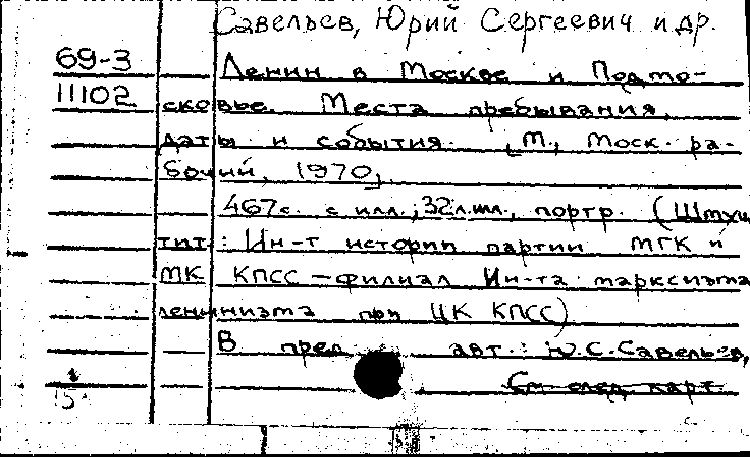 Савельев, Юрий Сергеевич и др.
69-3
Ленин в Москве и Подмо-
11102
сковье. Места пребывания,
даты и события. [М., Моск. ра-
бочий, 1970]
467с. с илл.; 32л.илл., портр. (Шмуц
тит.: Ин-т истории партии МГК и
МК КПСС — филиал Ин-та марксизма
ленинизма при ЦК КПСС)
В предисл. авт.: Ю.С.Савельев,
См след. карт.
15